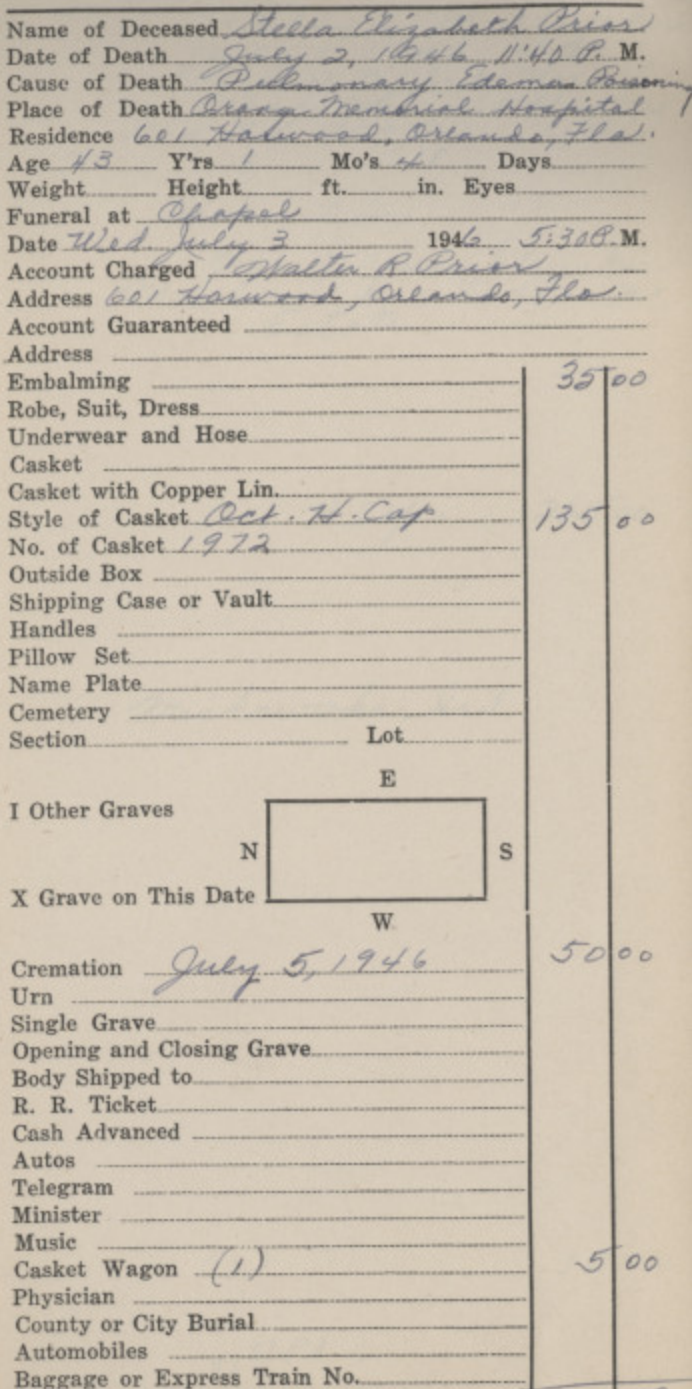 Name of Deceased Stella Elizabeth Prior
Date of Death July 2, 1946 11:40 P. M.
Cause of Death Pulmonary Edema Poisoning
Place of Death Orange Memorial Hospital
Residence 601 Harwood, Orlando, Fla.
Age 43 Y'rs 1 Mo's 4 Days
Weight Height ft. in. Eyes
Funeral at Chapel
Date Wed. July 3 1946 5:30 P. M.
Account Charged Walter R Prior
Address 601 Harwood, Orlando, Fla.
Account Guaranteed
Address
Embalming 35 00
Robe, Suit, Dress
Underwear and Hose
Casket
Casket with Copper Lin.
Style of Casket Oct. H. Cap 135 00
No. of Casket 1972
Outside Box
Shipping Case or Vault
Handles
Pillow Set
Name Plate
Cemetery
Section Lot
E
I Other Graves
N S
X Grave on This Date
W
Cremation July 5, 1946 50 00
Urn
Single Grave
Opening and Closing Grave
Body Shipped to
R. R. Ticket
Cash Advanced
Autos
Telegram
Minister
Music
Casket Wagon (1) 5 00
Physician
County or City Burial
Automobiles
Baggage or Express Train No.